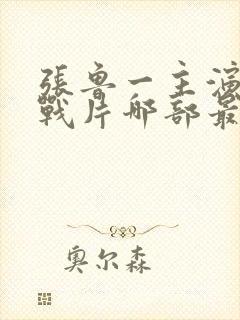 張鲁一主演
戰片哪部最
奥尔森